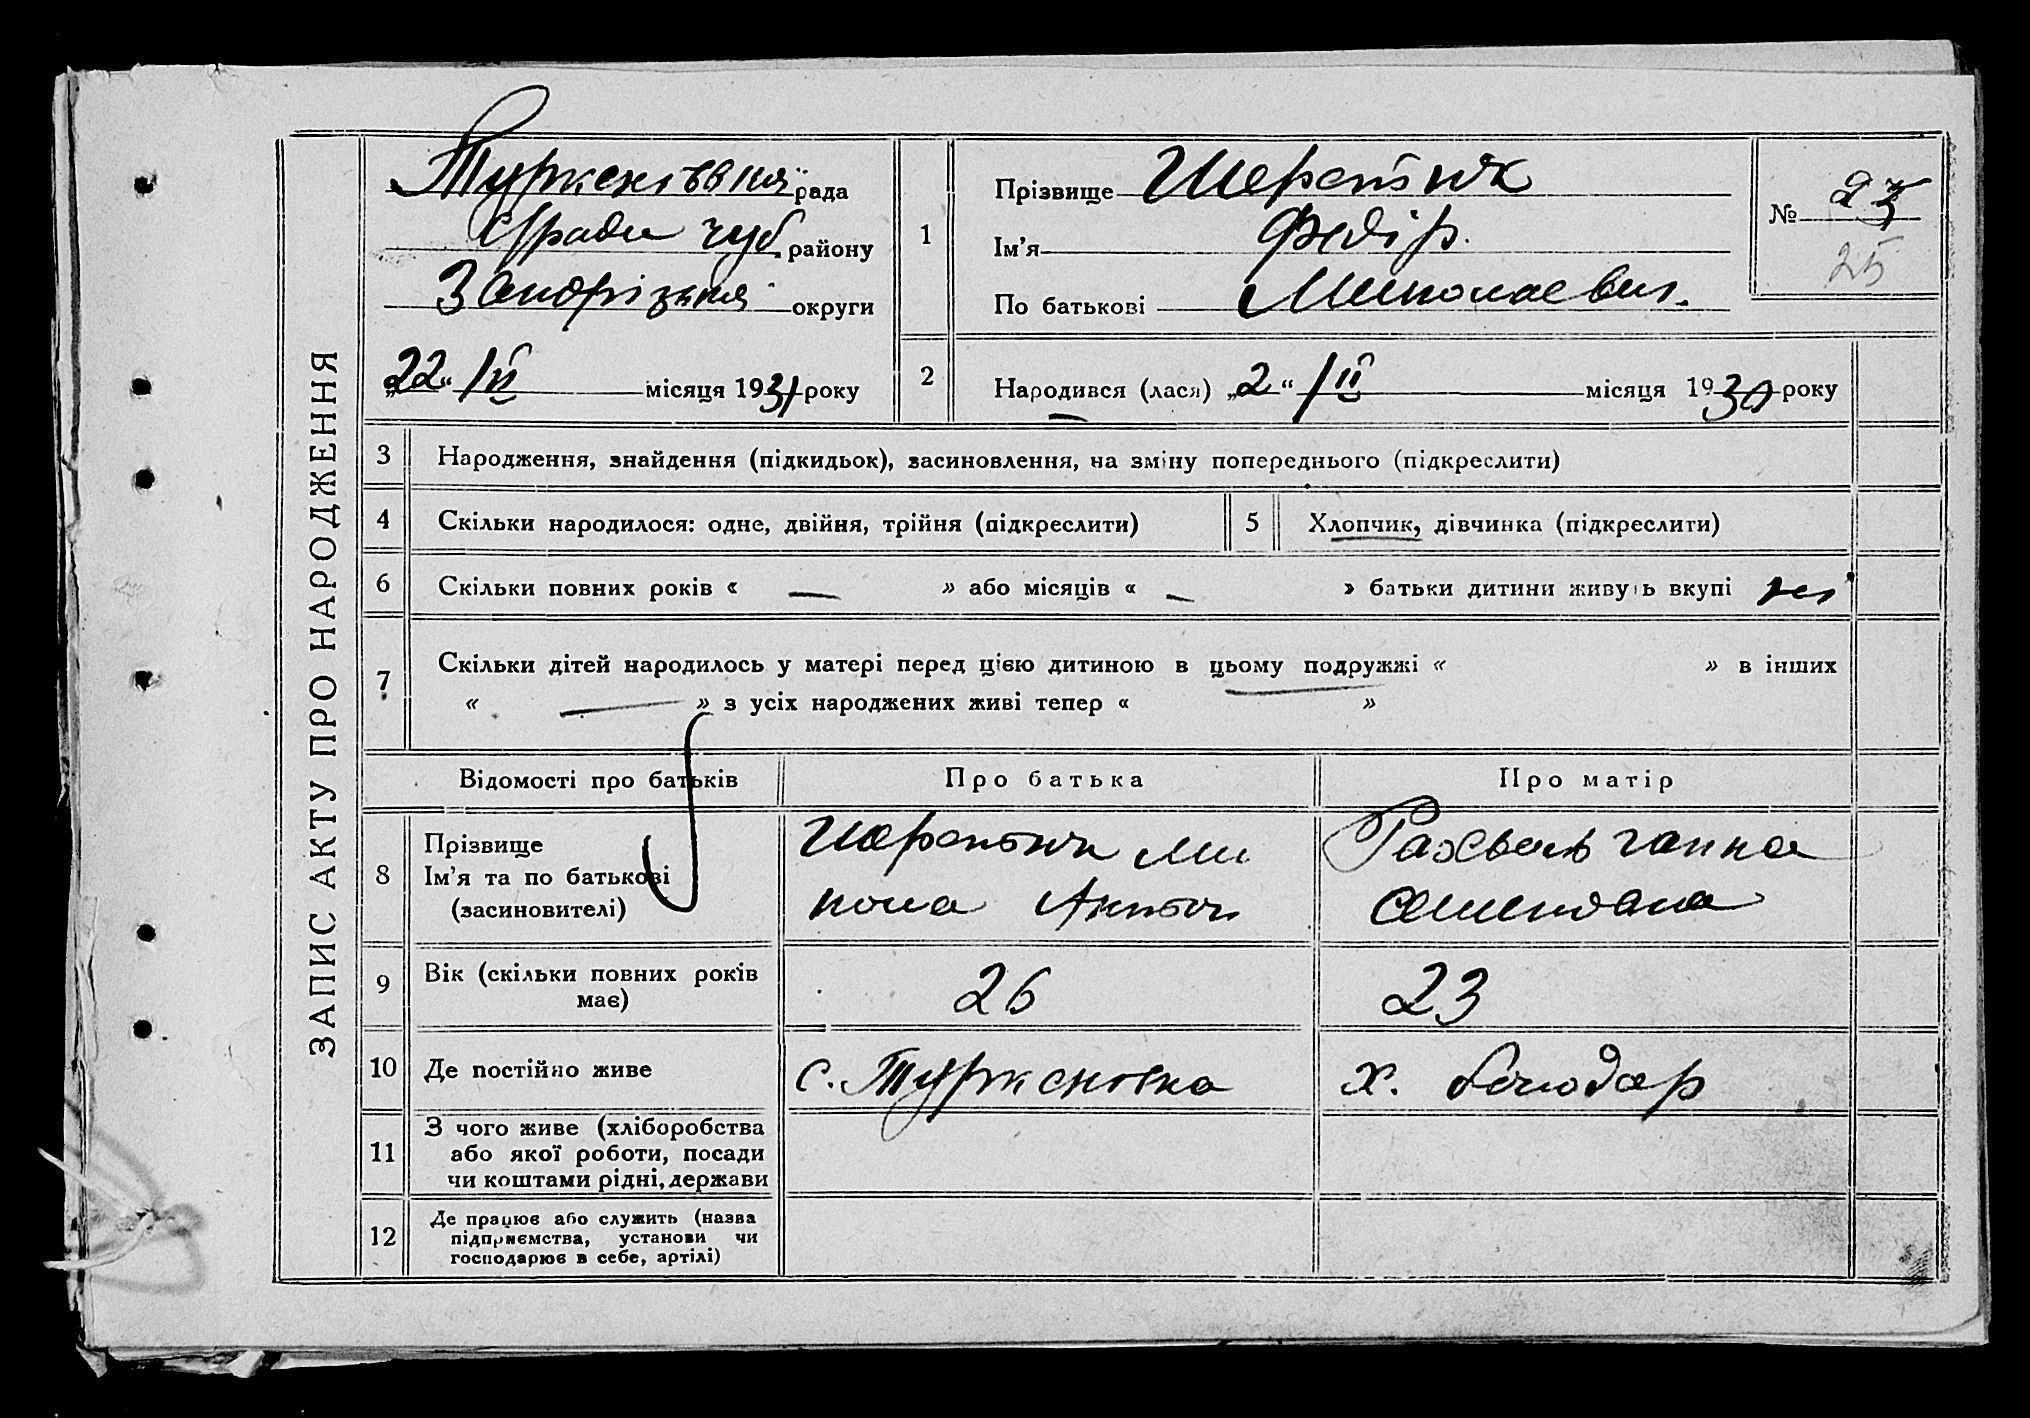 ЗАПИС АКТУ ПРО НАРОДЖЕННЯ
Туркенівська рада
району
округи
22 " / IV місяця 1931 року
1
Прізвище
Ім'я Федір
По батькові Миколаєвич.
№ 23
25
2
Народився (лася) „2" / II місяця 1930 року
3 Народження, знайдення (підкидьок), засиновлення, на зміну попереднього (підкреслити)
4 Скільки народилося: одне, двійня, трійня (підкреслити)
5 Хлопчик, дівчинка (підкреслити)
6 Скільки повних років « — » або місяців « — » батьки дитини живуть вкупі
7 Скільки дітей народилось у матері перед цією дитиною в цьому подружжі « » в інших
« — » з усіх народжених живі тепер « »
Відомості про батьків Про батька Про матір
8 Прізвище
Ім'я та по батькові
(засиновителі)
Ми
кола Антон
Ганна
9 Вік (скільки повних років
має)
26
23
10 Де постійно живе с. Туркеновка х.
11 З чого живе (хліборобства
або якої роботи, посади
чи коштами рідні, держави
12 Де працює або служить (назва
підприємства, установи чи
господарює в себе, артілі)